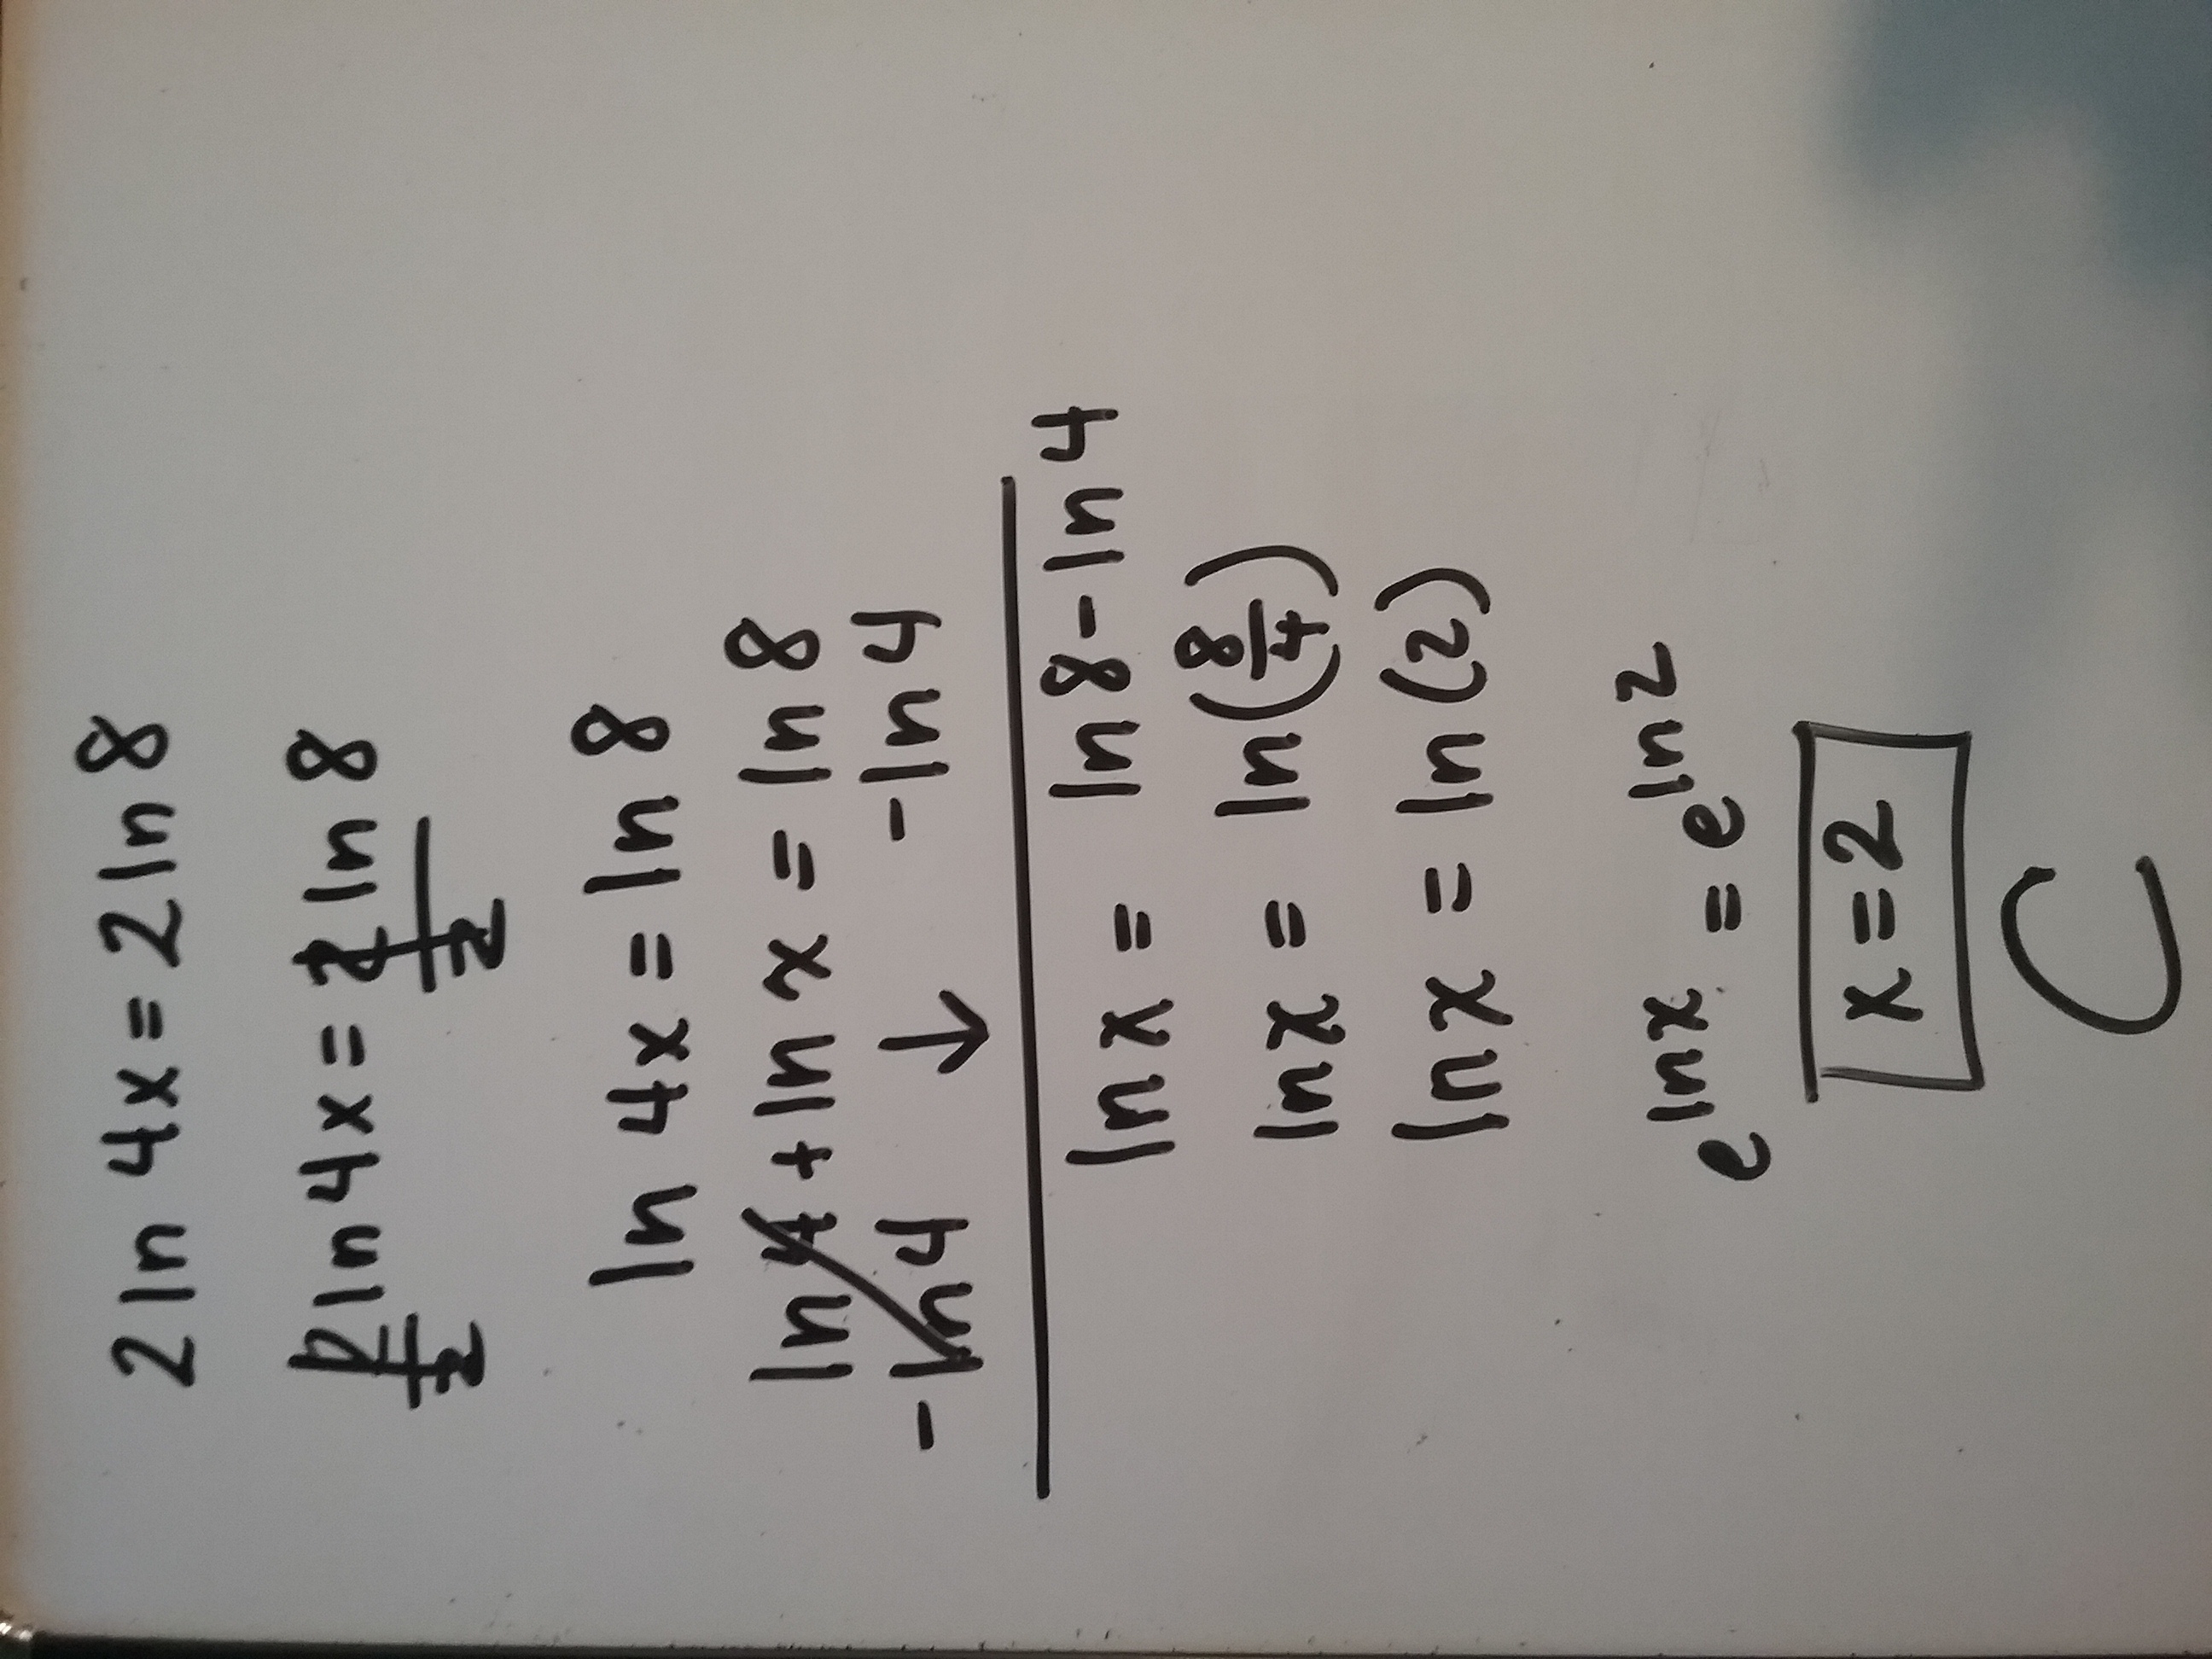 2 ln 4x = 2 ln 8
2 ln 4x = 2 ln 8
2 2
ln 4x = ln 8
ln 4 + ln x = ln 8
- ln 4 ↓ - ln 4
ln x = ln 8 - ln 4
ln x = ln (8/4)
ln x = ln (2)
e^ln x = e^ln 2
x = 2